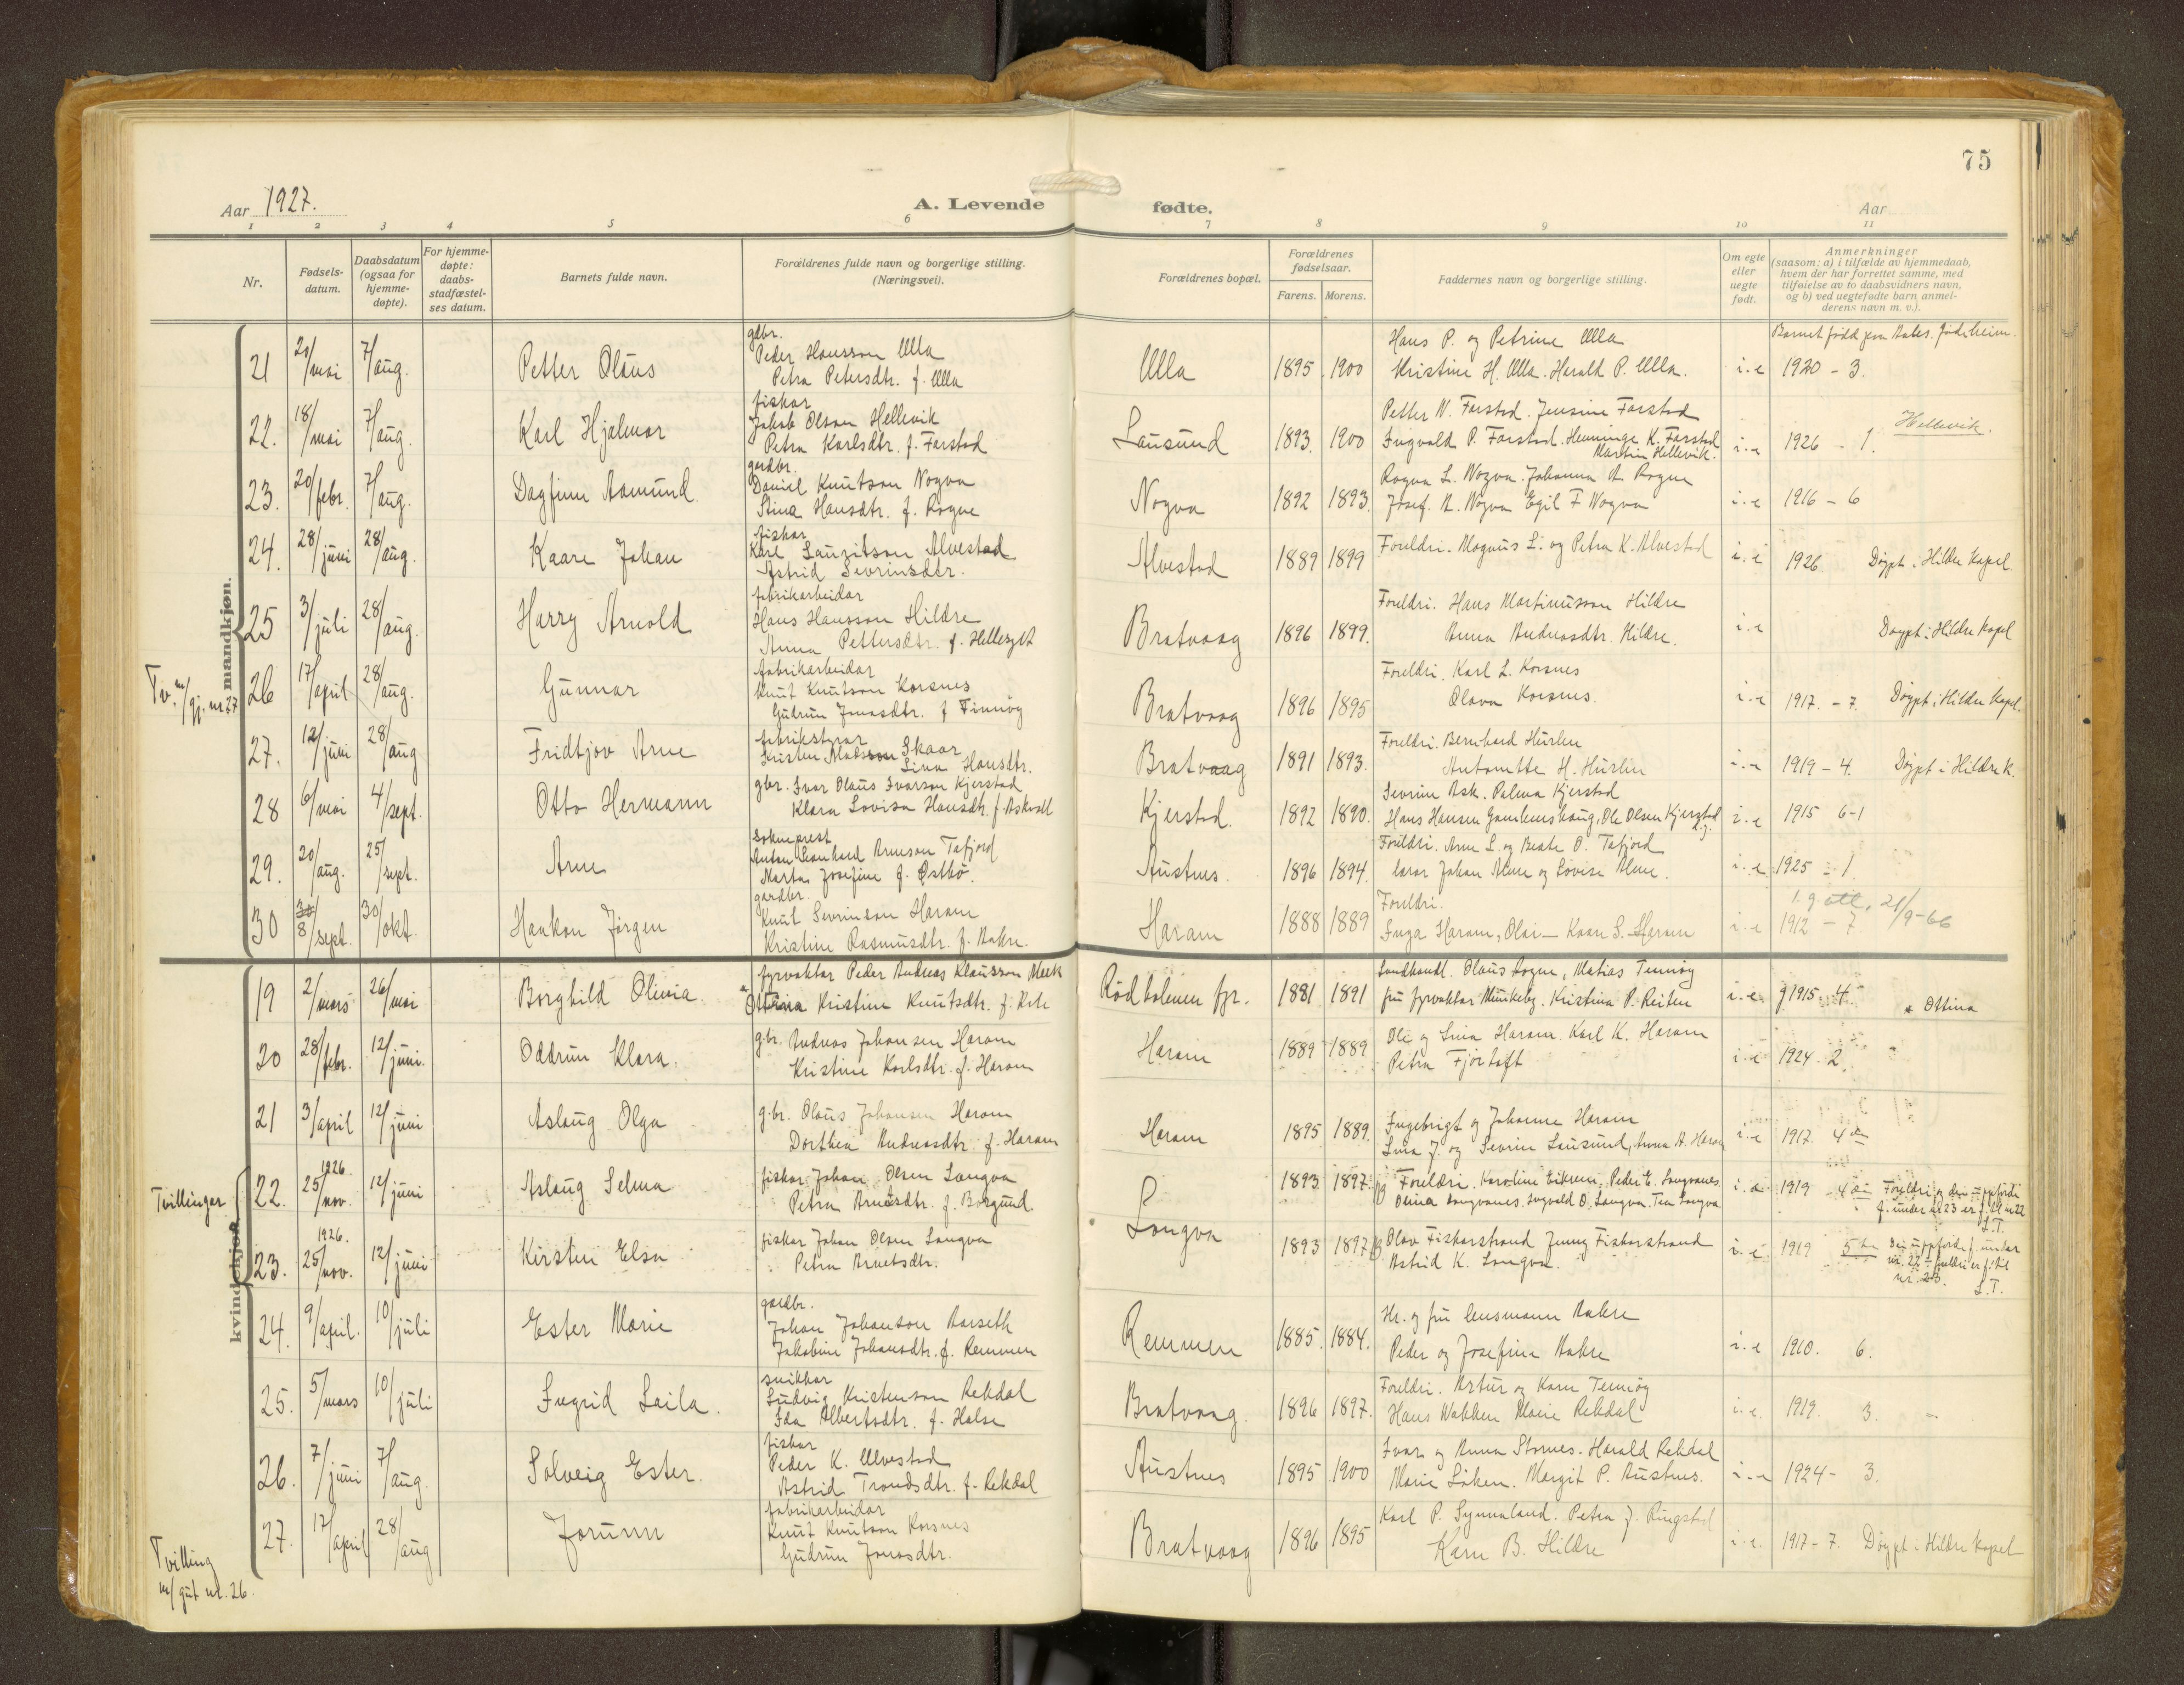 75
Aar 1927.
A. Levende fødte.
Aar
1 2 3 4 5 6 7 8 9 10 11
Nr.
Fødsels-
datum.
Daabsdatum
(ogsaa for
hjemme-
døpte).
For hjemme-
døpte:
daabs-
stadfæstel-
ses datum.
Barnets fulde navn.
Forældrenes fulde navn og borgerlige stilling.
(Næringsvei).
Forældrenes bopæl.
Forældrenes
fødselsaar.
Farens. Morens.
Faddernes navn og borgerlige stilling.
Om egte
eller
uegte
født.
Anmerkninger
(saasom: a) i tilfælde av hjemmedaab,
hvem der har forrettet samme, med
tilføielse av to daabsvidners navn,
og b) ved uegtefødte barn anmel-
derens navn m. v.).
mandkjøn.
21 20/mai 7/aug. Petter Olaus
gdbr.
Peder Hansson Ulla
Petra Petersdtr. f. Ulla
Ulla 1895 1900
Hans P. og Petrine Ulla
Kristine H. Ulla. Harald P. Ulla.
i-e 1920 - 3.
22. 18/mai 7/aug. Karl Hjalmar
fiskar
Jakob Olson Hellevik
Petra Karlsdtr. f. Farstad
Lausund 1893. 1900
Petter N. Farstad. Jensine Farstad
Ingvald P. Farstad. Henninge K. Farstad
Martin Hellevik.
i-e 1926 - 1.
Hellevik.
23. 20/febr. 7/aug. Dagfinn Aamund.
gardbr.
Daniel Knutson Nogva
Stina Hansdtr. f. Rogne
Nogva 1892 1893.
Rogna L. Nogva. Johanna A. Rogne
Josef. N. Nogva Egil F Nogva
i-e 1916 - 6
24. 28/juni 28/aug. Kaare Johan
fiskar
Karl Lauritson Alvestad
Astrid Sevrinsdtr.
Alvestad 1889 1899
Foreldri. Magnus L. og Petra K. Alvestad
i-e 1926 Døypt i Hildre Kapel
25 3/juli 28/aug. Harry Arnold
fabrikarbeidar
Hans Hansson Hildre
Anna Pettersdtr. f. Hellesylt
Bratvaag 1896 1899.
Foreldri. Hans Martinusson Hildre
Anna Andreasdtr. Hildre.
i-e Døypt i Hildre Kapel
Tv. m/gj. nr 27
26 17/april 28/aug. Gunnar
fabrikarbeidar
Knut Knutson Korsnes
Gudrun Jonasdtr. f Finnøy
Bratvaag 1896 1895
Foreldri. Karl L. Korsnes
Olava Korsnes.
i-e 1917. - 7. Døypt i Hildre Kapel.
27. 12/juni 28/aug Fridtjov Arne
fabrikstyrar
Kristen Madsson Skaar
Lina Hansdtr.
Bratvaag 1891 1893.
Foreldri. Bernhard Hurlen
Antonette H. Hurlen
i-e 1919 - 4. Døypt i Hildre K.
28 6/mai 4/sept. Otto Hermann
gbr. Ivar Olaus Ivarson Kjerstad
Klara Lovisa Hansdtr. f. Askvoll
Kjerstad. 1892 1890.
Sevrine Ask. Palma Kjerstad
Hans Hansen Gamlemshaug, Ole Olsen Kjerstad
i-e 1915 6-1
29. 20/aug. 25/sept. Arne
Sokneprest
Anton Leonhard Arneson Tafjord
Marta Josefine f. Østbø.
Austnes. 1896 1894.
Foreldri. Arne L. og Beate O. Tafjord
lærar Johan Alme og Lovise Alme.
i-e 1925 - 1.
30 8/sept. 30/okt. Haakon Jørgen
gardbr.
Knut Sevrinson Haram
Kristine Rasmusdtr. f. Aakre.
Haram 1888 1889
Foreldri.
Inga Haram, Olai - Kaare S. Haram
i-e 1912 - 7
21/9-66
kvindekjøn.
19 2/mars 26/mai Borghild Olivia.
fyrvaktar Peder Andreas Klausson Meek
Ottina Kristine Knutsdtr. f. Rote
Rødholmen fyr. 1881 1891
Landhandl. Olaus Rogne, Matias Tennøy
fru fyrvaktar Munkeby. Kristina P. Reiten
i-e 1915 4
* Ottina
20 28/febr. 12/juni. Oddrun Klara.
g.br. Andreas Johansen Haram
Kristine Karlsdtr. f. Haram
Haram 1889 1889
Ole og Lina Haram. Karl K. Haram
Petra Fjørtoft
i-e 1924 2.
21 3/april 12/juni Aslaug Olga
g.br. Olaus Johansen Haram
Dorthea Andreasdtr. f. Haram
Haram 1895 1889.
Ingebrigt og Johanne Haram
Lina J. og Sevrin Lausund, Anna A. Haram
i-e 1917. 4
Tvillingar
22. 1926. 25/nov. 12/juni Aslaug Selma
fiskar Johan Olsen Longva
Petra Arnesdtr. f. Borgund.
Longva
1893 1897.
Foreldri. Karoline Eiknem, Peder E. Longvanes.
Olina Longvanes. Ingvald O. Longva. Tea Longva
i-e 1919 4 Foreldri og dei uppførde
f. under nr 23 er f. til nr 22
L.T.
23. 1926. 25/nov. 12/juni Kirsten Elsa
fiskar Johan Olsen Longva
Petra Arnetsdtr.
1893 1897
Olav Fiskarstrand Jenny Fiskarstrand
Astrid K. Longva.
i-e 1919 5 Dei uppførde f. under
nr. 22 - foreldri er f. til
nr. 23.
L.T.
24. 9/april. 10/juli Ester Marie
gardbr.
Johan Johanson Aarseth
Jakobine Johansdtr. f. Remmen
Remmen 1885. 1884.
Hr. og fru lensmann Aakre
Peder og Josefine Aakre
i-e 1910. 6.
25. 5/mars 10/juli Ingrid Laila.
snikkar
Ludvig Kristenson Rekdal
Ida Albertsdtr. f. Halse
Bratvaag. 1896 1897.
Foreldri. Artur og Karen Tennøy
Hans Nakken Marie Rekdal
i-e. 1919. 3.
26. 7/juni 7/aug. Solveig Ester.
fiskar
Peder K. Ulvestad
Astrid Trondsdtr. f. Rekdal
Austnes 1895 1900
Ivar og Anna Stornes. Harald Rekdal
Marie Løken. Margit P. Austnes.
i-e 1924 - 3.
Tvilling
m/gut nr. 26.
27. 17/april 28/aug Jorunn
fabrikarbeidar
Knut Knutson Korsnes
Gudrun Jonasdtr.
Bratvaag 1896 1895
Karl P. Synnaland. Petra J. Ringstad
Karen B. Hildre
i-e. 1917 - 7. Døypt i Hildre Kapel